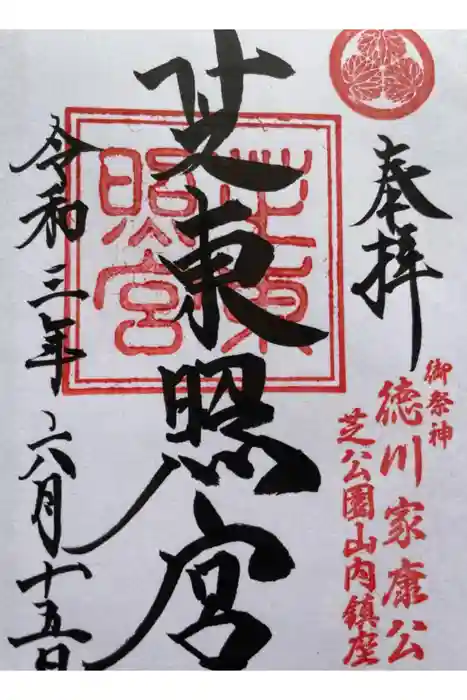 奉拝
御祭神
徳川家康公
芝公園山内鎮座
芝東照宮
芝東
照宮
令和三年六月十五日